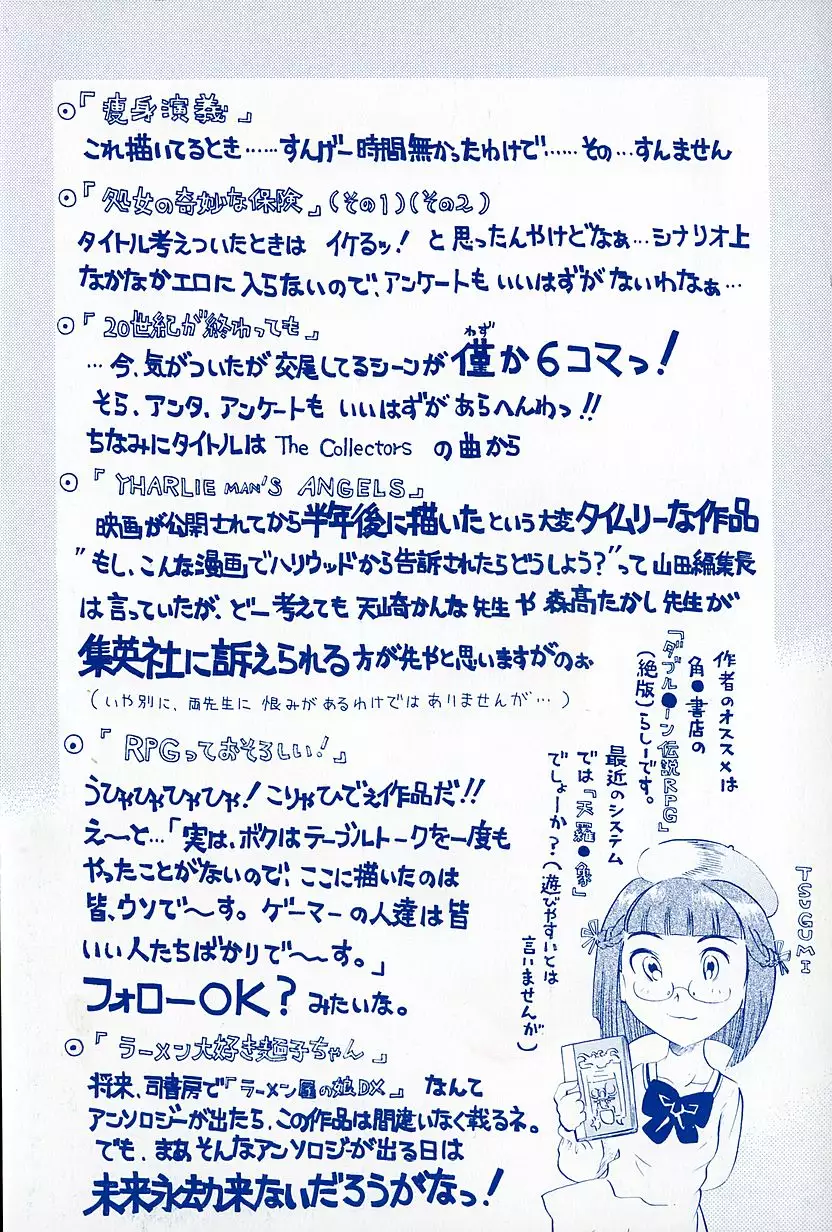 ◉『痩身演義』
これ描いてるとき……すんげー時間無かったわけで……その…すんません
◉『処女の奇妙な保険』(その1)(その2)
タイトル考えついたときは イケるッ! と思ったんやけどなぁ…シナリオ上
なかなかエロに入らないので、アンケートもいいはずがないわなぁ…
◉『20世紀が終わっても』
…今、気がついたが交尾してるシーンが僅か6コマっ!
わず
そら、アンタ、アンケートも いいはずがあらへんわっ!!
ちなみにタイトルは The Collectors の曲から
◉『YHARLIE MAN'S ANGELS』
映画が公開されてから半年後に描いたという大変タイムリーな作品
"もし、こんな漫画でハリウッドから告訴されたらどうしよう?"って山田編集長
は言っていたが、どー考えても天崎かんな先生や森高たかし先生が
集英社に訴えられる方が先やと思いますがのぉ
(いや別に、両先生に恨みがあるわけではありませんが…)
◉『RPGっておそろしい!』
うひゃひゃひゃひゃ!こりゃひでぇ作品だ!!
え〜と…「実は、ボクはテーブルトークを一度も
やったことがないので、ここに描いたのは
皆、ウソで〜す。ゲーマーの人達は皆
いい人たちばかりで〜〜す。」
フォローOK?みたいな。
◉『ラーメン大好き麺子ちゃん』
将来、司書房で『ラーメン屋の娘DX』なんて
アンソロジーが出たら、この作品は間違いなく載るネ。
でも、まぁそんなアンソロジーが出る日は
未来永劫来ないだろうがなっ!
作者のオススメは
角●書店の
『ダブル●ーン伝説RPG』
(絶版)らしーです。
最近のシステム
では『天羅●象』
でしょーか?(遊びやすいとは
言いませんが)
TSUGUMI